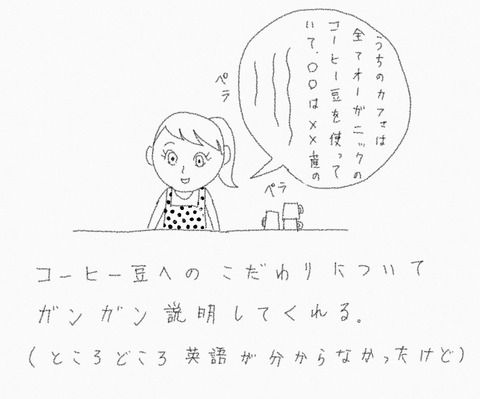 うちのカフェは
全てオーガニックの
コーヒー豆を使って
いて、〇〇は××産の
ペラ
ペラ
コーヒー豆へのこだわりについて
ガンガン説明してくれる。
(ところどころ英語が分からなかったけど)